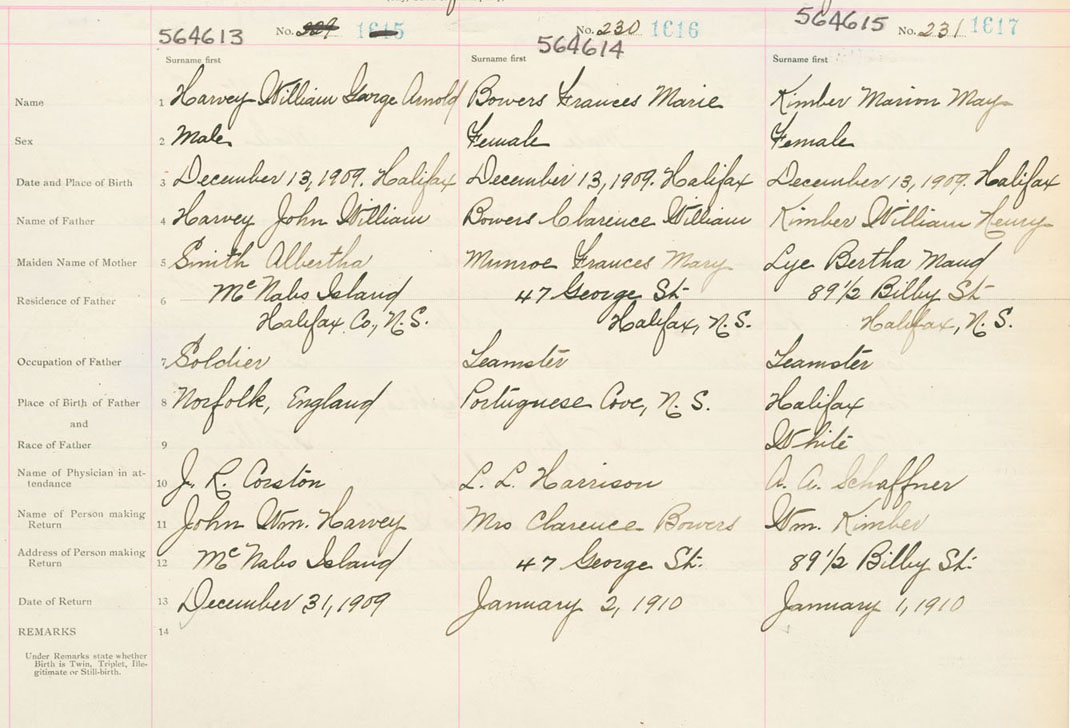 564613 No. 229 1615 No. 230 1616 564614 564615 No. 231 1617
Surname first Surname first Surname first
Name 1 Harvey William George Arnold Bowers Frances Marie Kimber Marion May
Sex 2 Male Female Female
Date and Place of Birth 3 December 13, 1909. Halifax December 13, 1909. Halifax December 13, 1909. Halifax
Name of Father 4 Harvey John William Bowers Clarence William Kimber William Henry
Maiden Name of Mother 5 Smith Albertha Munroe Frances Mary Lye Bertha Maud
Residence of Father 6 McNabs Island 47 George St. 89 1/2 Bilby St.
Halifax Co., N.S. Halifax, N.S. Halifax, N.S.
Occupation of Father 7 Soldier Teamster Teamster
Place of Birth of Father 8 Norfolk, England Portuguese Cove, N.S. Halifax
and
Race of Father 9 White
Name of Physician in at-
tendance 10 J. R. Corston L. L. Harrison A. A. Schaffner
Name of Person making
Return 11 John Wm. Harvey Mrs Clarence Bowers Wm. Kimber
Address of Person making
Return 12 McNabs Island 47 George St. 89 1/2 Bilby St.
Date of Return 13 December 31, 1909 January 2, 1910 January 1, 1910
REMARKS 14
Under Remarks state whether
Birth is Twin, Triplet, Ille-
gitimate or Still-birth.